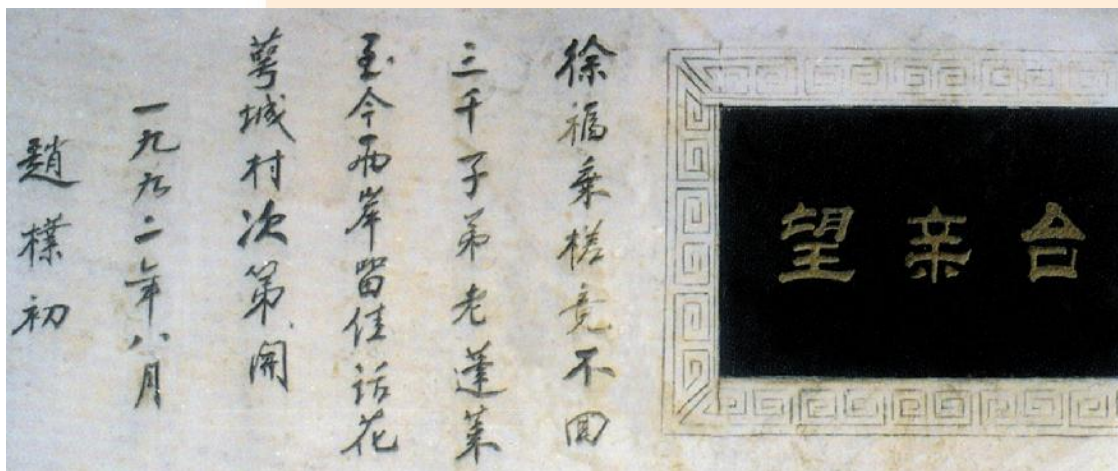 望亲台
徐福乘槎竟不回
三千子弟老蓬莱
至今两岸留佳话花
萼城村次第開
一九九二年八月
趙樸初